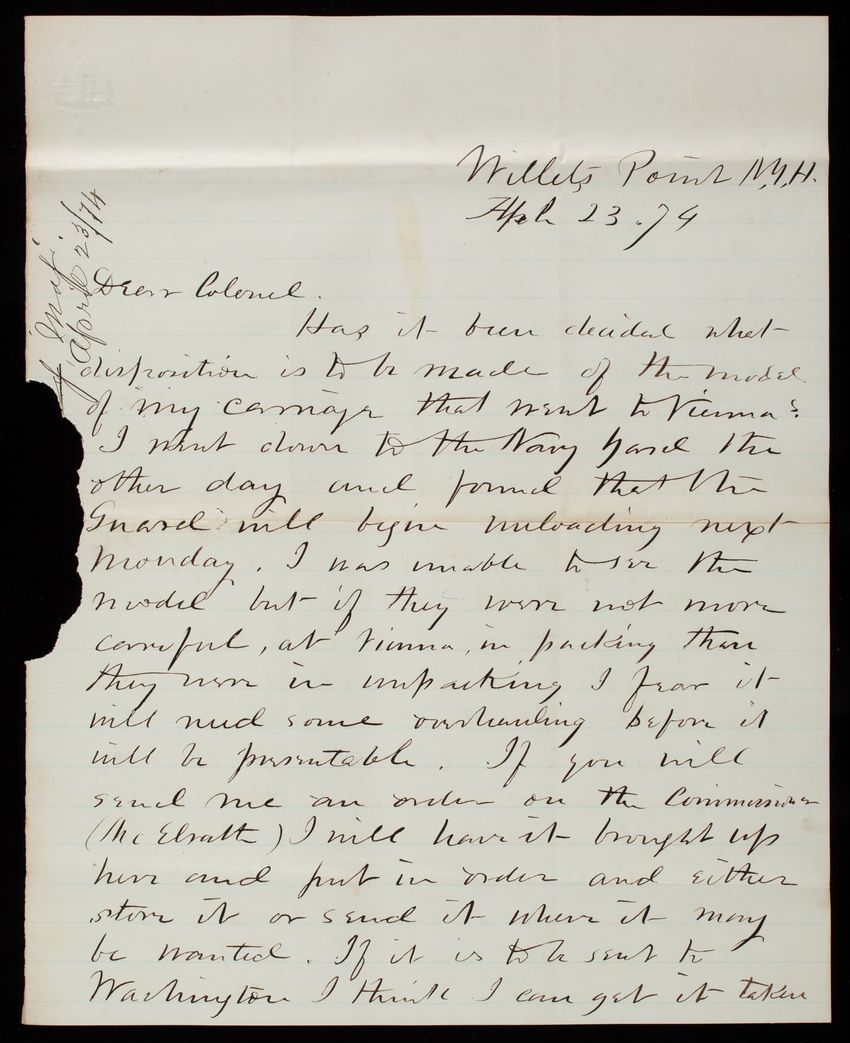 Willets Point N.Y.H.
Apl. 23. 74
April 23/74
Dear Colonel.
Has it been decided what
disposition is to be made of the model
of my carriage that went to Vienna?
I went down to the Navy Yard the
other day and found that the
Guard will begin unloading next
Monday. I was unable to see the
model but if they were not more
careful, at Vienna, in packing than
they were in unpacking I fear it
will need some overhauling before it
will be presentable. If you will
send me an order on the Commissioner
(McElrath) I will have it brought up
here and put in order and either
store it or send it where it may
be wanted. If it is to be sent to
Washington I think I can get it taken